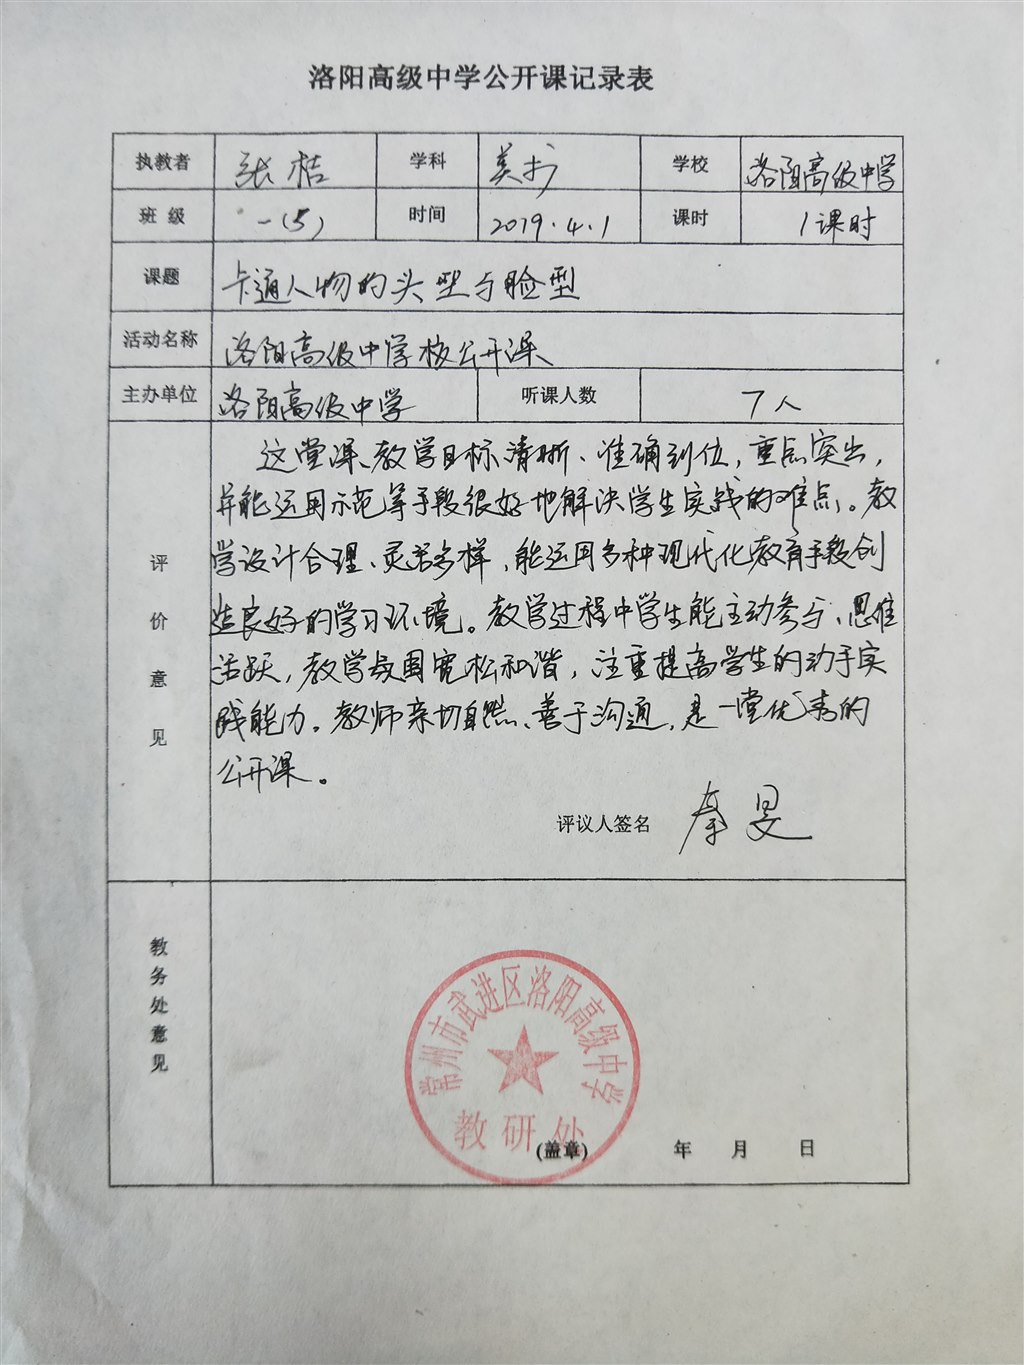 洛阳高级中学公开课记录表
执教者 张桔 学科 美术 学校 洛阳高级中学
班级 一(5) 时间 2019.4.1 课时 1课时
课题 卡通人物的头型与脸型
活动名称 洛阳高级中学校公开课
主办单位 洛阳高级中学 听课人数 7人
评价意见
这堂课、教学目标清晰、准确到位，重点突出，
并能运用示范等手段很好地解决学生实践的难点。教
学设计合理、灵活多样，能运用多种现代化教育手段创
造良好的学习环境。教学过程中学生能主动参与、思维
活跃，教学氛围宽松和谐，注重提高学生的动手实
践能力。教师亲切自然、善于沟通，是一堂优秀的
公开课。
评议人签名 秦旻
教务处意见
常州市武进区洛阳高级中学
教研处
(盖章) 年 月 日